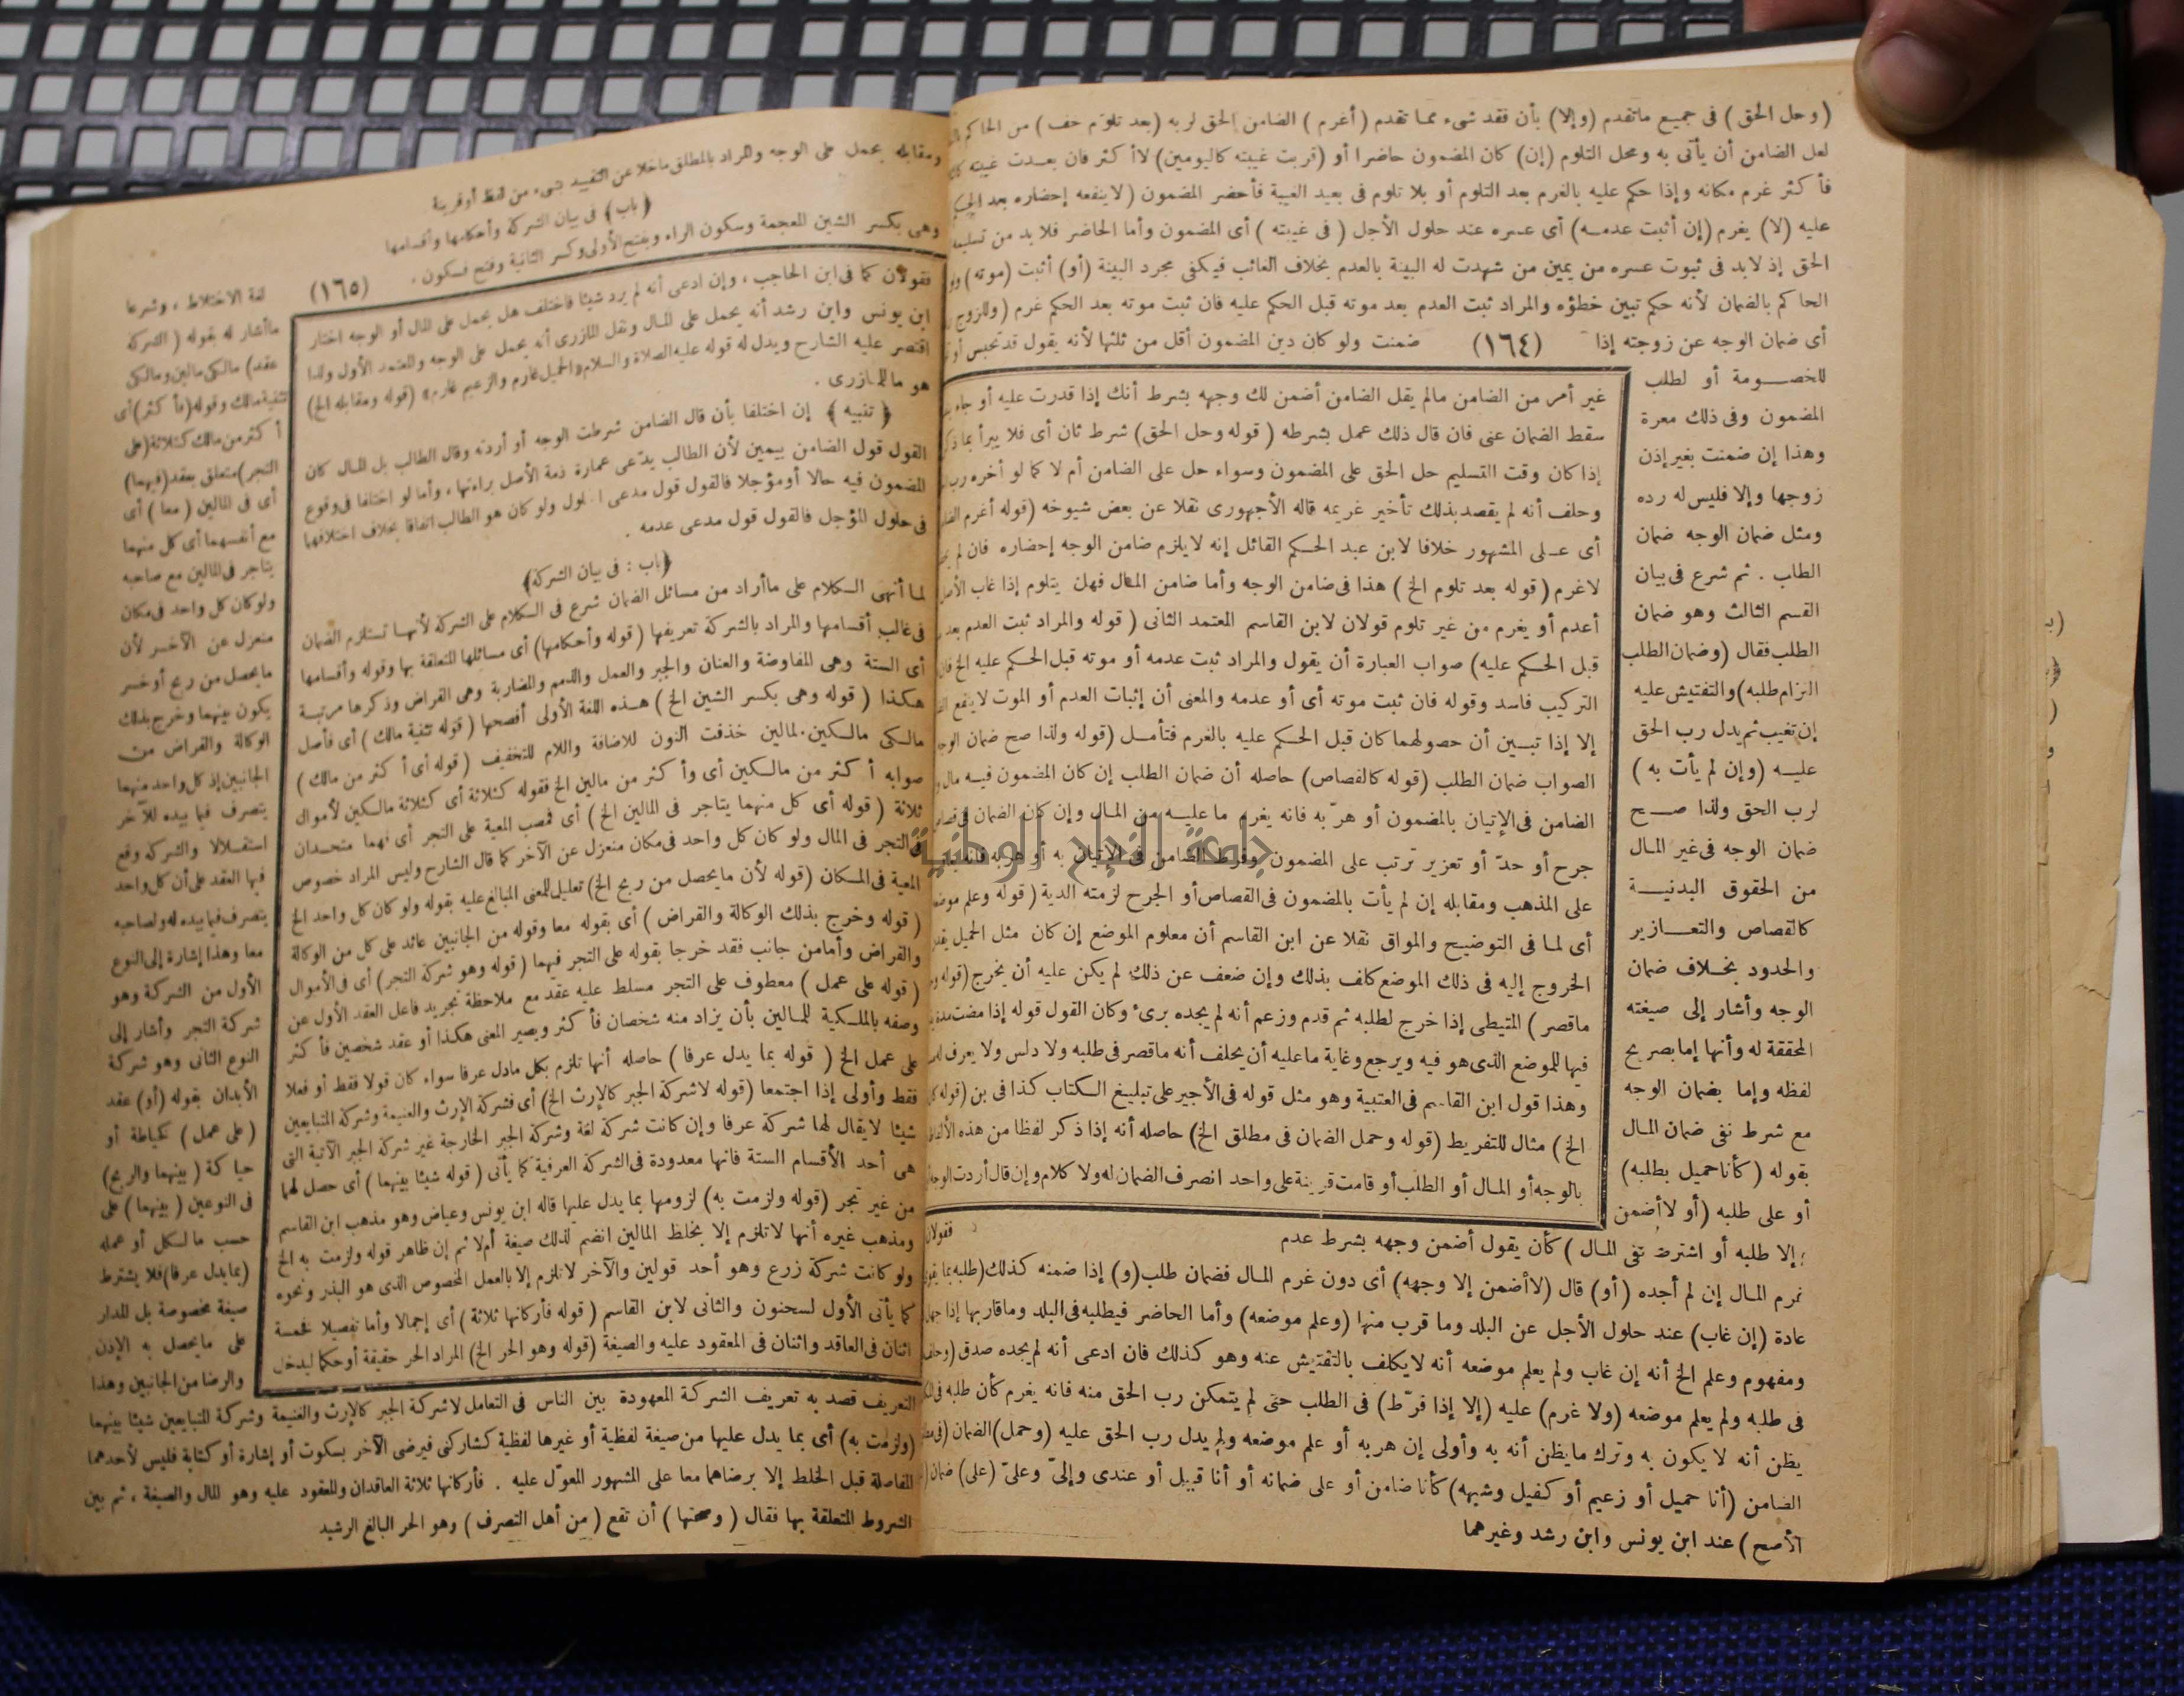 (وحل الحق) فى جميع ماتقدم (وإلا) بأن فقد شىء مما تقدم (أغرم) الضامن الحق لربه (بعد تلوّم خف) من الحاكم
لعل الضامن أن يأتى به ومحل التلوم (إن) كان المضمون حاضرا أو (قربت غيبته كاليومين) لا أكثر فان بعدت غيبته
فأكثر غرم مكانه وإذا حكم عليه بالغرم بعد التلوم أو بلا تلوم فى بعيد الغيبة فأحضر المضمون (لاينفعه إحضاره بعد الحكم
عليه (لا) يغرم (إن أثبت عدمه) أى عسره عند حلول الأجل (فى غيبته) أى المضمون وأما الحاضر فلا بد من تسليمه
الحق إذ لابد فى ثبوت عسره من يمين من شهدت له البينة بالعدم بخلاف الغائب فيكفى مجرد البينة (أو) أثبت (موته)
الحاكم بالضمان لأنه حكم تبين خطؤه والمراد ثبت العدم بعد موته قبل الحكم عليه فان ثبت موته بعد الحكم غرم (وللزوج
أى ضمان الوجه عن زوجته إذا (١٦٤) ضمنت ولو كان دين المضمون أقل من ثلثها لأنه يقول قد تحبس أو
للخصومة أو لطلب
المضمون وفى ذلك معرة
وهذا إن ضمنت بغير إذن
زوجها وإلا فليس له رده
ومثل ضمان الوجه ضمان
الطاب . ثم شرع فى بيان
القسم الثالث وهو ضمان
الطلب فقال (وضمان الطلب
التزام طلبه) والتفتيش عليه
إن تغيب ثم يدل رب الحق
عليه (وإن لم يأت به)
لرب الحق ولذا صح
ضمان الوجه فى غير المال
من الحقوق البدنية
كالقصاص والتعازير
والحدود بخلاف ضمان
الوجه وأشار إلى صيغته
المحققة له وأنها إما بصريح
لفظه وإما بضمان الوجه
مع شرط نفى ضمان المال
بقوله (كأنا حميل بطلبه)
أو على طلبه (أو لا أضمن
غير أمر من الضامن مالم يقل الضامن أضمن لك وجهه بشرط أنك إذا قدرت عليه أو جاء
سقط الضمان عنى فان قال ذلك عمل بشرطه (قوله وحل الحق) شرط ثان أى فلا يبرأ بما
إذا كان وقت التسليم حل الحق على المضمون وسواء حل على الضامن أم لا كما لو أخره رب
وحلف أنه لم يقصد بذلك تأخير غريمه قاله الأجهورى نقلا عن بعض شيوخه (قوله أغرم
أى على المشهور خلافا لابن عبد الحكم القائل إنه لايلزم ضامن الوجه إحضاره فان لم
لاغرم (قوله بعد تلوم الخ) هذا فى ضامن الوجه وأما ضامن المال فهل يتلوم إذا غاب
أعدم أو يغرم من غير تلوم قولان لابن القاسم المعتمد الثانى (قوله والمراد ثبت العدم بعد
قبل الحكم عليه) صواب العبارة أن يقول والمراد ثبت عدمه أو موته قبل الحكم عليه الخ
التركيب فاسد وقوله فان ثبت موته أى أو عدمه والمعنى أن إثبات العدم أو الموت لا ينفع
إلا إذا تبين أن حصولهما كان قبل الحكم عليه بالغرم فتأمل (قوله ولذا صح ضمان الوجه
الصواب ضمان الطلب (قوله كالقصاص) حاصله أن ضمان الطلب إن كان المضمون فيه مال
الضامن فى الإتيان بالمضمون أو هرّبه فانه يغرم ما عليه من المال وإن كان الضمان فى
جرح أو حدّ أو تعزير ترتب على المضمون وفرط الضامن فى الإتيان به أو هربه
على المذهب ومقابله إن لم يأت بالمضمون فى القصاص أو الجرح لزمته الدية (قوله وعلم
أى لما فى التوضيح والمواق نقلا عن ابن القاسم أن معلوم الموضع إن كان مثل الحميل
الخروج إليه فى ذلك الموضع كلف بذلك وإن ضعف عن ذلك لم يكن عليه أن يخرج (قوله
ماقصر) المتيطى إذا خرج لطلبه ثم قدم وزعم أنه لم يجده برئ وكان القول قوله إذا مضت مدة
فيها للموضع الذى هو فيه ويرجع وغاية ماعليه أن يحلف أنه ماقصر فى طلبه ولا دلس ولا يعرف
وهذا قول ابن القاسم فى العتبية وهو مثل قوله فى الأجير على تبليغ الكتاب كذا فى بن (قوله
الخ) مثال للتفريط (قوله وحمل الضمان فى مطلق الخ) حاصله أنه إذا ذكر لفظا من هذه
بالوجه أو المال أو الطلب أو قامت قرينة على واحد انصرف الضمان له ولا كلام وإن قال أردت الوجه
فقولان
إلا طلبه أو اشترط نفى المال) كأن يقول أضمن وجهه بشرط عدم
غرم المال إن لم أجده (أو) قال (لا أضمن إلا وجهه) أى دون غرم المال فضمان طلب (و) إذا ضمنه كذلك (طلبه بما
عادة (إن غاب) عند حلول الأجل عن البلد وما قرب منها (وعلم موضعه) وأما الحاضر فيطلبه فى البلد وما قاربها إذا
ومفهوم وعلم الخ أنه إن غاب ولم يعلم موضعه أنه لايكلف بالتفتيش عنه وهو كذلك فان ادعى أنه لم يجده صدق
فى طلبه ولم يعلم موضعه (ولا غرم) عليه (إلا إذا فرّط) فى الطلب حتى لم يتمكن رب الحق منه فانه يغرم كأن طلبه
يظن أنه لا يكون به وترك مايظن أنه به وأولى إن هربه أو علم موضعه ولم يدل رب الحق عليه (وحمل) الضمان
الضامن (أنا حميل أو زعيم أو كفيل وشبهه) كأنا ضامن أو على ضمانه أو أنا قبيل أو عندى وإلىّ وعلىّ (على) ضمان
الأصح) عند ابن يونس وابن رشد وغيرهما
ومقابله يحمل على الوجه والمراد بالمطلق ماخلا عن التقييد بشىء من لفظ أو قرينة
﴿باب﴾ فى بيان الشركة وأحكامها وأقسامها
وهى بكسر الشين المعجمة وسكون الراء وبفتح الأولى وكسر الثانية وفتح فسكون .
(١٦٥)
لغة الاختلاط ، وشرعا
ماأشار له بقوله (الشركة
عقد) مالكى مالين ومالكى
تثنية مالك وقوله (فأكثر) أى
أكثر من مالك كثلاثة (على
التجر) متعلق بعقد (فيهما)
أى فى المالين (معا) أى
مع أنفسهما أى كل منهما
يتاجر فى المالين مع صاحبه
ولو كان كل واحد فى مكان
منعزل عن الآخر لأن
مايحصل من ربح أو خسر
يكون بينهما وخرج بذلك
الوكالة والقراض من
الجانبين إذ كل واحد منهما
يتصرف فيما بيده للآخر
استقلالا والشركة وقع
فيها العقد على أن كل واحد
يتصرف فيما بيده له ولصاحبه
معا وهذا إشارة إلى النوع
الأول من الشركة وهو
شركة التجر وأشار إلى
النوع الثانى وهو شركة
الأبدان بقوله (أو) عقد
(على عمل) كخياطة أو
حياكة (بينهما والربح)
فى النوعين (بينهما) على
حسب مالكل أو عمله
(بما يدل عرفا) فلا يشترط
صيغة مخصوصة بل المدار
على مايحصل به الإذن
والرضا من الجانبين وهذا
فقولان كما فى ابن الحاجب ، وإن ادعى أنه لم يرد شيئا فاختلف هل يحمل على المال أو الوجه اختار
ابن يونس وابن رشد أنه يحمل على المال ونقل المازرى أنه يحمل على الوجه والمعتمد الأول ولذا
اقتصر عليه الشارح ويدل له قوله عليه الصلاة والسلام «الحميل غارم والزعيم غارم» (قوله ومقابله الخ)
هو ماللمازرى .
﴿تنبيه﴾ إن اختلفا بأن قال الضامن شرطت الوجه أو أردته وقال الطالب بل المال كان
القول قول الضامن بيمين لأن الطالب يدّعى عمارة ذمة الأصل براءتها ، وأما لو اختلفا فى وقوع
المضمون فيه حالا أو مؤجلا فالقول قول مدعى الحلول ولو كان هو الطالب اتفاقا بخلاف اختلافهما
فى حلول المؤجل فالقول قول مدعى عدمه .
﴿باب : فى بيان الشركة﴾
لما أنهى الكلام على ماأراد من مسائل الضمان شرع فى الكلام على الشركة لأنها تستلزم الضمان
فى غالب أقسامها والمراد بالشركة تعريفها (قوله وأحكامها) أى مسائلها المتعلقة بها وقوله وأقسامها
أى الستة وهى المفاوضة والعنان والجبر والعمل والذمم والمضاربة وهى القراض وذكرها مرتبة
هكذا (قوله وهى بكسر الشين الخ) هذه اللغة الأولى أفصحها (قوله تثنية مالك) أى فأصل
مالكى مالكين لمالين حذفت النون للاضافة واللام للتخفيف (قوله أى أكثر من مالك)
صوابه أكثر من مالكين أى وأكثر من مالين الخ فقوله كثلاثة أى كثلاثة مالكين لأموال
ثلاثة (قوله أى كل منهما يتاجر فى المالين الخ) أى فمصب المعية على التجر أى فهما متحدان
فى التجر فى المال ولو كان كل واحد فى مكان منعزل عن الآخر كما قال الشارح وليس المراد خصوص
المعية فى المكان (قوله لأن مايحصل من ربح الخ) تعليل للمعنى المبالغ عليه بقوله ولو كان كل واحد الخ
(قوله وخرج بذلك الوكالة والقراض) أى بقوله معا وقوله من الجانبين عائد على كل من الوكالة
والقراض وأمامن جانب فقد خرجا بقوله على التجر فيهما (قوله وهو شركة التجر) أى فى الأموال
(قوله على عمل) معطوف على التجر مسلط عليه عقد مع ملاحظة تجريد فاعل العقد الأول عن
وصفه بالملكية للمالين بأن يزاد منه شخصان فأكثر ويصير المعنى هكذا أو عقد شخصين فأكثر
على عمل الخ (قوله بما يدل عرفا) حاصله أنها تلزم بكل مادل عرفا سواء كان قولا فقط أو فعلا
فقط وأولى إذا اجتمعا (قوله لاشركة الجبر كالإرث الخ) أى فشركة الإرث والغنيمة وشركة المتبايعين
شيئا لايقال لها شركة عرفا وإن كانت شركة لغة وشركة الجبر الخارجة غير شركة الجبر الآتية التى
هى أحد الأقسام الستة فانها معدودة فى الشركة العرفية كما يأتى (قوله شيئا بينهما) أى حصل لهما
من غير تجر (قوله ولزمت به) لزومها بما يدل عليها قاله ابن يونس وعياض وهو مذهب ابن القاسم
ومذهب غيره أنها لاتلزم إلا بخلط المالين انضم لذلك صيغة أم لا ثم إن ظاهر قوله ولزمت به الخ
ولو كانت شركة زرع وهو أحد قولين والآخر لاتلزم إلا بالعمل المخصوص الذى هو البذر ونحوه
كما يأتى الأول لسحنون والثانى لابن القاسم (قوله فأركانها ثلاثة) أى إجمالا وأما تفصيلا فخمسة
اثنان فى العاقد واثنان فى المعقود عليه والصيغة (قوله وهو الحر الخ) المراد الحر حقيقة أو حكما ليدخل
التعريف قصد به تعريف الشركة المعهودة بين الناس فى التعامل لاشركة الجبر كالإرث والغنيمة وشركة المتبايعين شيئا بينهما
(ولزمت به) أى بما يدل عليها من صيغة لفظية أو غيرها لفظية كشاركنى فيرضى الآخر بسكوت أو إشارة أو كتابة فليس لأحدهما
المفاصلة قبل الخلط إلا برضاهما معا على المشهور المعوّل عليه . فأركانها ثلاثة العاقدان والمعقود عليه وهو المال والصيغة ، ثم بين
الشروط المتعلقة بها فقال (وصحتها) أن تقع (من أهل التصرف) وهو الحر البالغ الرشيد
جامعة النجاح الوطنية